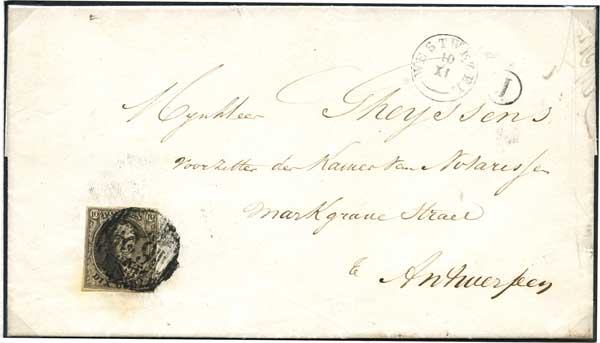 WESTWEZEL
10
XI
I
Mynheer Theyssens
Voorzitter der Kamer van Notarissen
Markgrave Straet
te Antwerpen
10 10